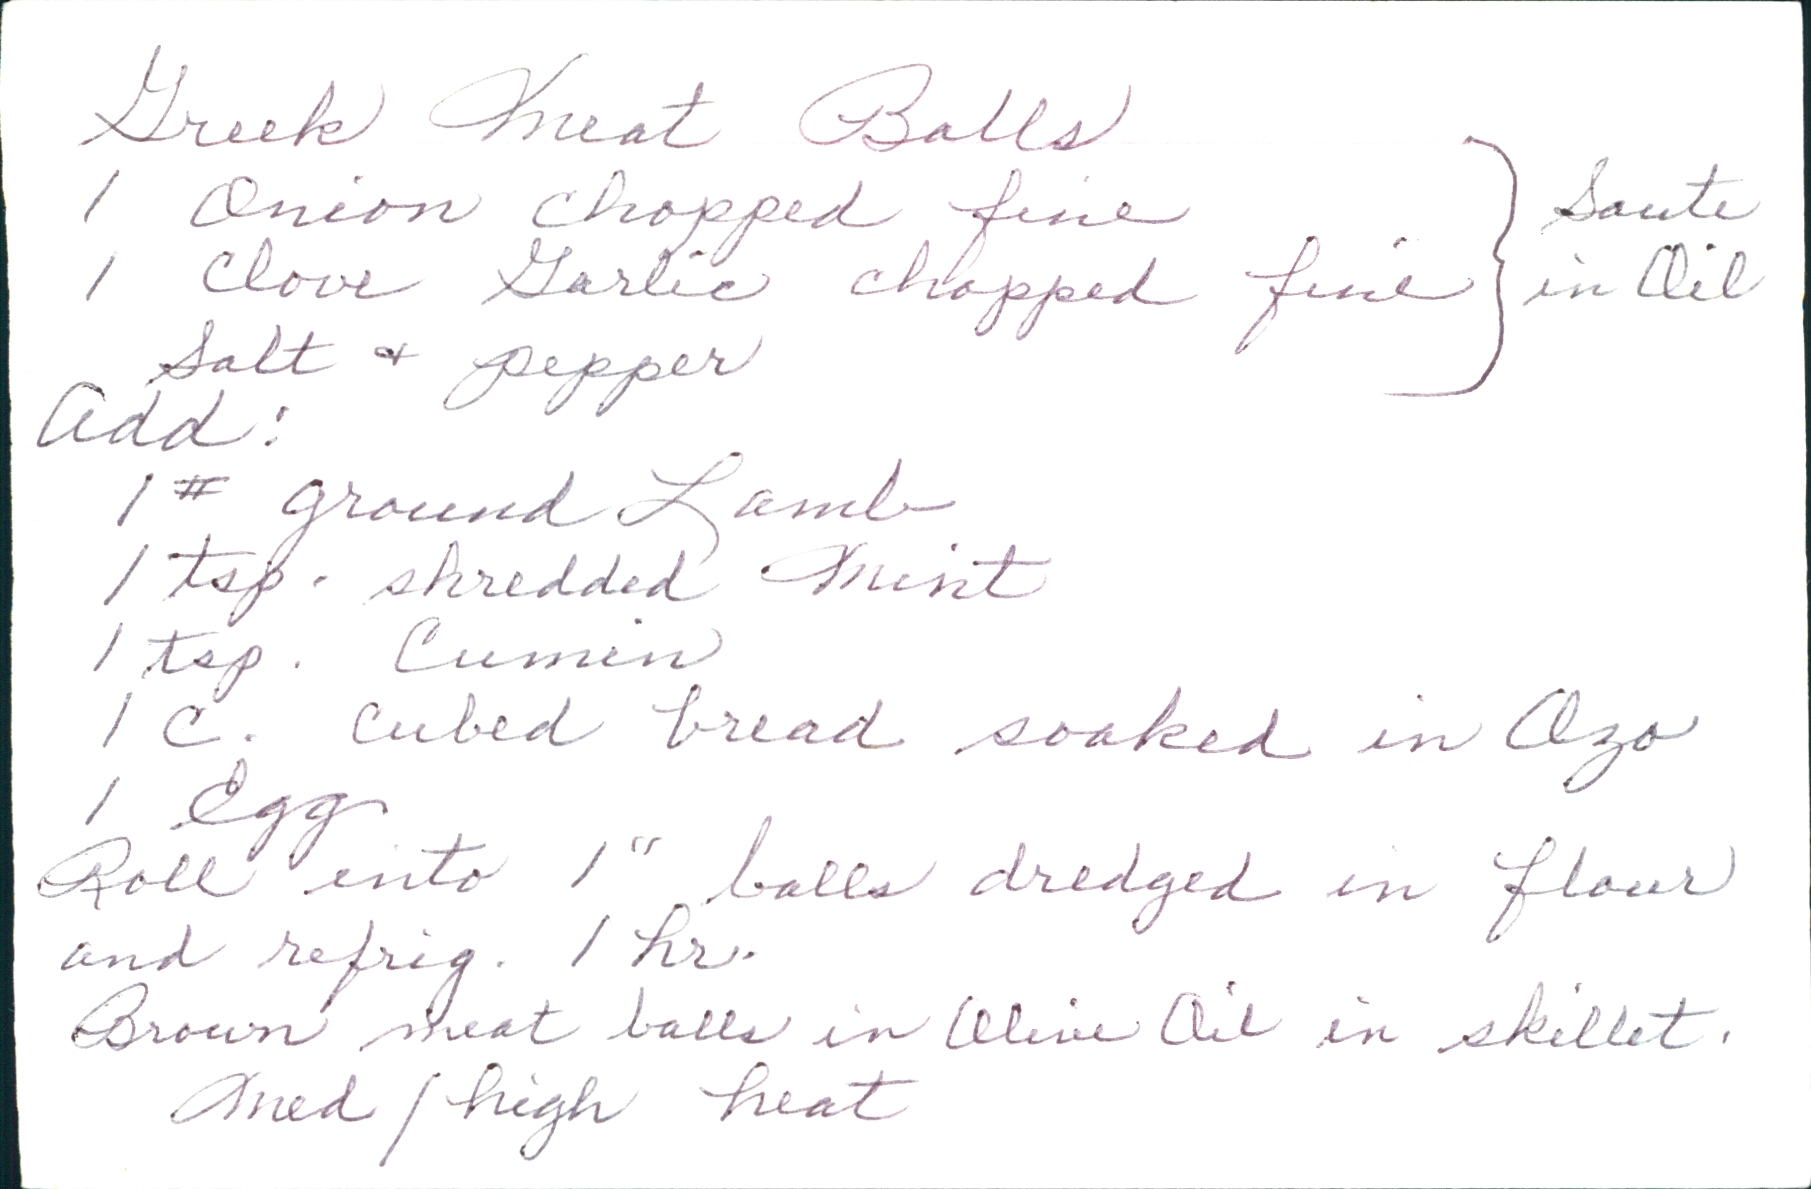 Greek Meat Balls
1 Onion chopped fine
1 Clove Garlic chopped fine
Salt + pepper
Saute
in Oil
Add:
1# ground Lamb
1 tsp. shredded Mint
1 tsp. Cumin
1 C. cubed bread soaked in Ozo
1 Egg
Roll into 1" balls dredged in flour
and refrig. 1 hr.
Brown meat balls in Olive Oil in skillet.
Med / high heat